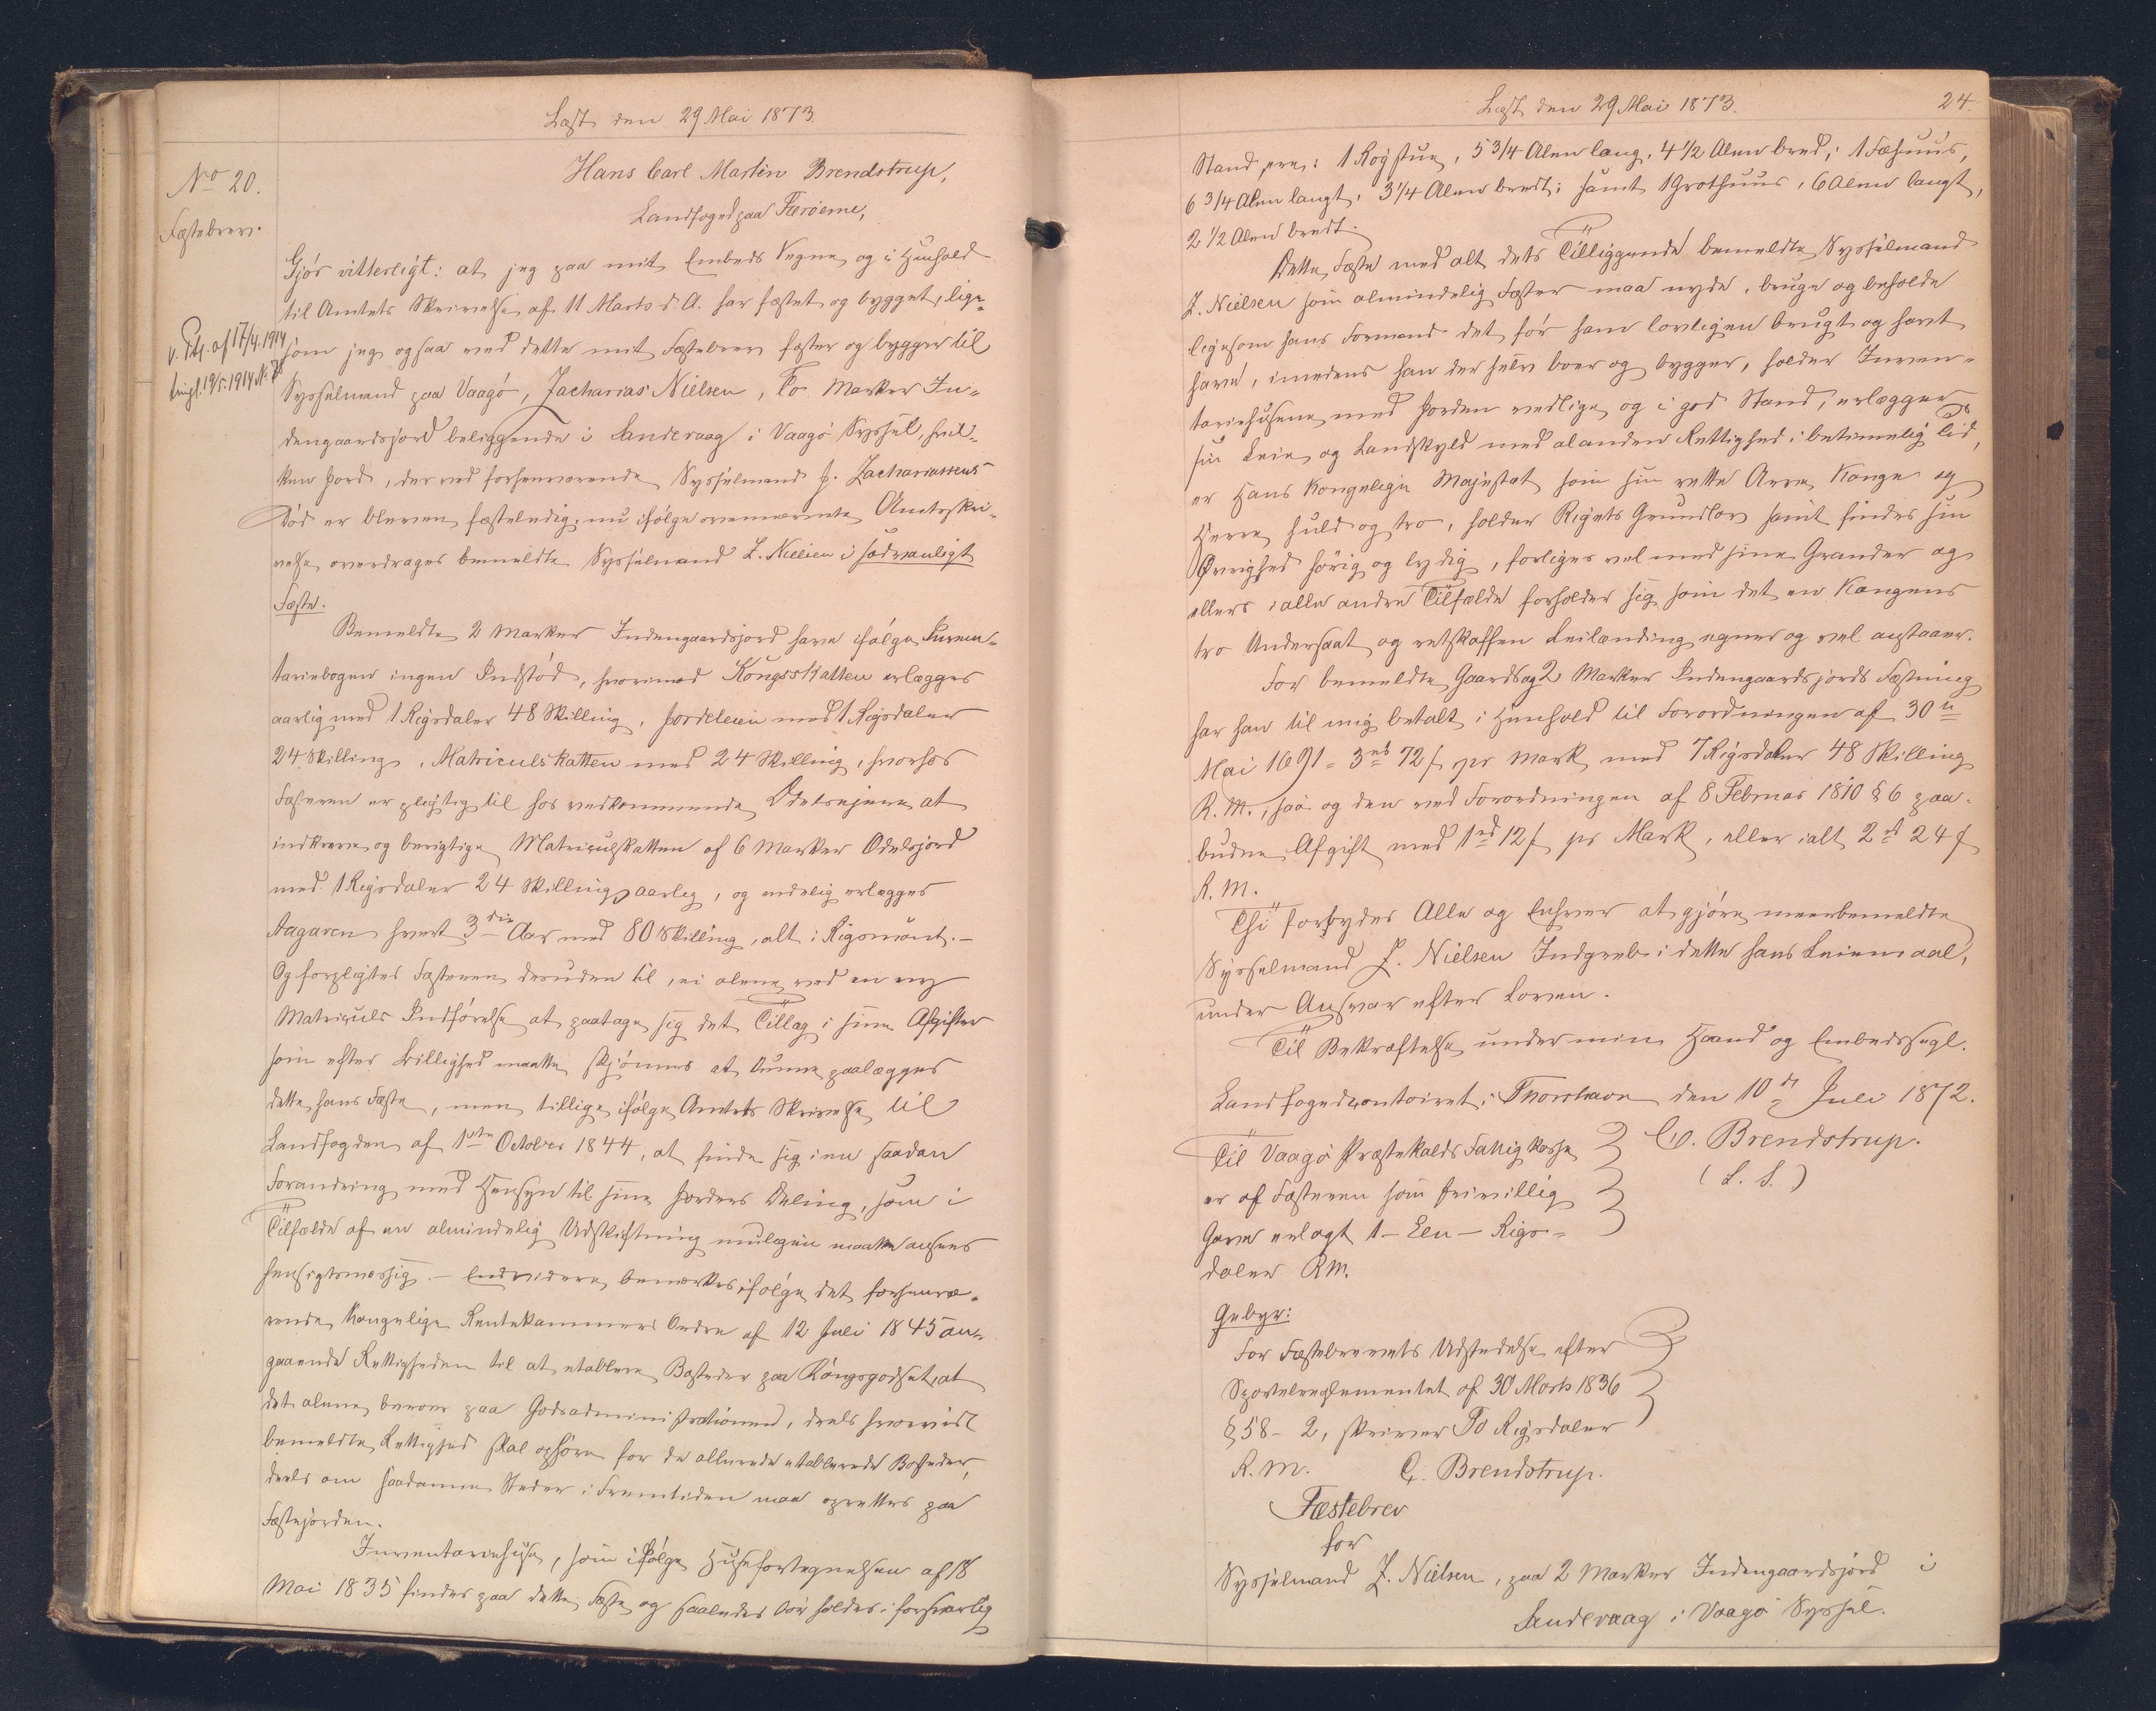 Læst den 29 Mai 1873.
No 20.
Fæstebrev.
v. Påt. af 17/4.1914
tingl. 19/5.1914 N. 75
Hans Carl Martin Brendstrup,
Landfoged paa Færöerne,
Gjör vitterligt: at jeg paa mit Embeds Vegne og i Henhold
til Amtets Skrivelse af 11 Marts d. A. har fæstet og bygget, lige-
som jeg ogsaa med dette mit Fæstebrev fæster og bygger til
Sysselmand paa Vaagö, Zacharias Nielsen, To Marker In-
dengaardsjord beliggende i Sandevaag i Vaagö Syssel, hvil-
ken Jord, der ved forhenværende Sysselmand J. Zachariassens
Död er bleven fæsteledig, nu ifölge ovennævnte Amtsskri-
velse overdrages bemeldte Sysselmand Z. Nielsen i sædvanligt
Fæste.
Bemeldte 2 Marker Indengaardsjord have ifölge Inven-
tariebogen ingen Indstöd, hvorimod Kongsskatten erlægges
aarlig med 1 Rigsdaler 48 Skilling, Jordeleien med 1 Rigsdaler
24 Skilling, Matriculskatten med 24 Skilling, hvorhos
Fæsteren er pligtig til hos vedkommende Odelsejere at
indkræve og berigtige Matriculskatten af 6 Marker Odelsjord
med 1 Rigsdaler 24 Skilling aarlig, og endelig erlægges
Aagaven hvert 3die Aar med 80 Skilling, alt i Rigsmönt. —
Og forpligtes Fæsteren desuden til, ei alene ved en ny
Matriculs Indförelse at paatage sig det Tillæg i sine Afgifter
som efter Billighed maatte skjönnes at kunne paalægges
dette hans Fæste, men tillige ifölge Amtets Skrivelse til
Landfogden af 1ste October 1844, at finde sig i en saadan
Forandring med Hensyn til sine Jorders Deling, som i
Tilfælde af en almindelig Udskiftning muligen maatte ansees
hensigtsmæssig. — Endvidere bemærkes ifölge det forhenvæ-
rende Kongelige Rentekammers Ordre af 12 Juli 1845 an-
gaaende Rettigheden til at etablere Bosteder paa Kongsgodset, at
det alene beroer paa Godsadministrationen, deels hvorvidt
bemeldte Rettighed skal ophöre for de allerede etablerede Bosteder,
deels om saadanne Steder i Fremtiden maa oprettes paa
Fæstejorden.
Inventariehuse, som ifölge Husefortegnelsen af 18
Mai 1835 findes paa dette Fæste og saaledes bör holdes i forsvarlig
Læst den 29 Mai 1873.
24.
Stand, ere: 1 Rögstue, 5 3/4 Alen lang, 4 1/2 Alen bred; 1 Fæhuus,
6 3/4 Alen langt, 3 1/4 Alen bredt; samt 1 Grothuus, 6 Alen langt,
2 1/2 Alen bredt.
Dette Fæste med alt dets Tilliggende bemeldte Sysselmand
Z. Nielsen som almindelig Fæster maa nyde, bruge og beholde
ligesom hans Formand det för ham lovligen brugt og havt
haver, imedens han der selv boer og bygger, holder Inven-
tariehusene med Jorden vedlige og i god Stand, erlægger
sin Leie og Landskyld med al anden Rettighed i betimelig Tid,
er Hans Kongelige Majestæt som sin rette Arve Konge og
Herre huld og tro, holder Rigets Grundlov samt findes sin
Övrighed hörig og lydig, forliges vel med sine Grander og
ellers i alle andre Tilfælde forholder sig som det en Kongens
tro Undersaat og retskaffen Leilænding egner og vel anstaaer.
For bemeldte Gaards og 2 Marker Indengaardsjords Fæstning
har han til mig betalt i Henhold til Forordningen af 30te
Mai 1691 = 3rd 72 s pr Mark med 7 Rigsdaler 48 Skilling
R.M., saa og den ved Forordningen af 8 Februar 1810 § 6 paa-
budne Afgift med 1rd 12 s pr Mark, eller ialt 2rd 24 s
R.M.
Thi forbydes Alle og Enhver at gjöre meerbemeldte
Sysselmand Z. Nielsen Indgreb i dette hans Leiemaal,
under Ansvar efter Loven.
Til Bekræftelse under min Haand og Embedssegl.
Landfogedcontoiret i Thorshavn den 10de Juli 1872.
C. Brendstrup.
(L. S.)
Til Vaagö Præstekalds Fattigkasse
er af Fæsteren som frivillig
Gave erlagt 1 — Een — Rigs-
daler RM.
Gebyr:
For Fæstebrevets Udstedelse efter
Sportelreglementet af 30 Marts 1836
§ 58 - 2, skriver To Rigsdaler
R.M.
C. Brendstrup.
Fæstebrev
for
Sysselmand Z. Nielsen, paa 2 Marker Indengaardsjord i
Sandevaag i Vaagö Syssel.